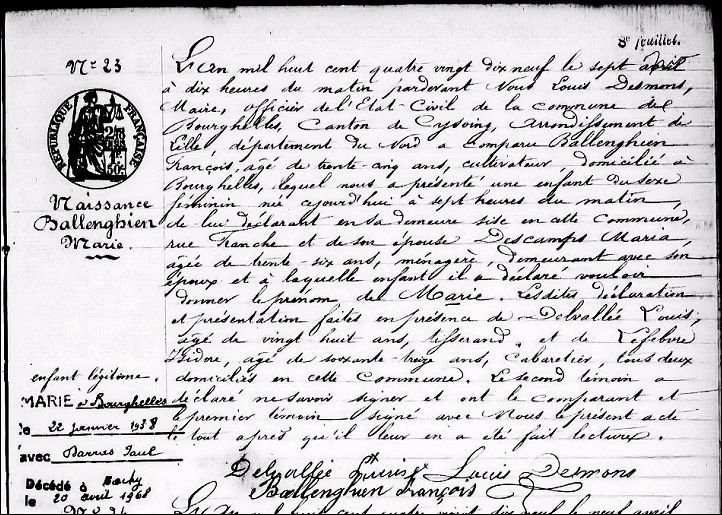 8e feuillet.
Nº 23
RÉPUBLIQUE FRANÇAISE
Naissance
Ballenghien
Marie.
L'an mil huit cent quatre vingt dix neuf le sept avril
à dix heures du matin pardevant Nous Louis Desmons,
Maire, officier de l'Etat-Civil de la commune de
Bourghelles, Canton de Cysoing, Arrondissement de
Lille, département du Nord a comparu Ballenghien
François, âgé de trente-cinq ans, cultivateur domicilié à
Bourghelles, lequel nous a présenté une enfant du sexe
féminin née cejourd'hui à sept heures du matin,
de lui déclarant en sa demeure sise en cette Commune,
rue Franche et de son épouse Descamps Maria,
agée de trente-six ans, ménagère, demeurant avec son
époux et à laquelle enfant il a déclaré vouloir
donner le prénom de Marie. Lesdites déclaration
et présentation faites en présence de Delvallée Louis,
âgé de vingt huit ans, tisserand, et de Lefebvre
Isidore, agé de soixante-treize ans, Cabaretier, tous deux
domiciliés en cette Commune. Le second témoin a
déclaré ne savoir signer et ont le comparant et
le premier témoin signé avec Nous le présent acte
le tout après qu'il leur en a été fait lecture.
Delvallée Louis Louis Desmons
Ballenghien françois
enfant légitime.
MARIÉ à Bourghelles
le 22 janvier 1938
avec Barras Paul
Décédé à
le 20 avril 1968
L'an mil huit cent quatre vingt dix neuf le neuf avril